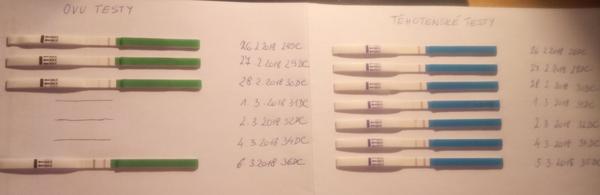 OVU TESTY
26.2.2018 28DC
27.2.2018 29DC
28.2.2018 30DC
1.3.2018 31DC
2.3.2018 32DC
4.3.2018 34DC
6.3.2018 36DC
TĚHOTENSKÉ TESTY
26.2.2018 28DC
27.2.2018 29DC
28.2.2018 30DC
1.3.2018 31DC
2.3.2018 32DC
4.3.2018 34DC
5.3.2018 35DC